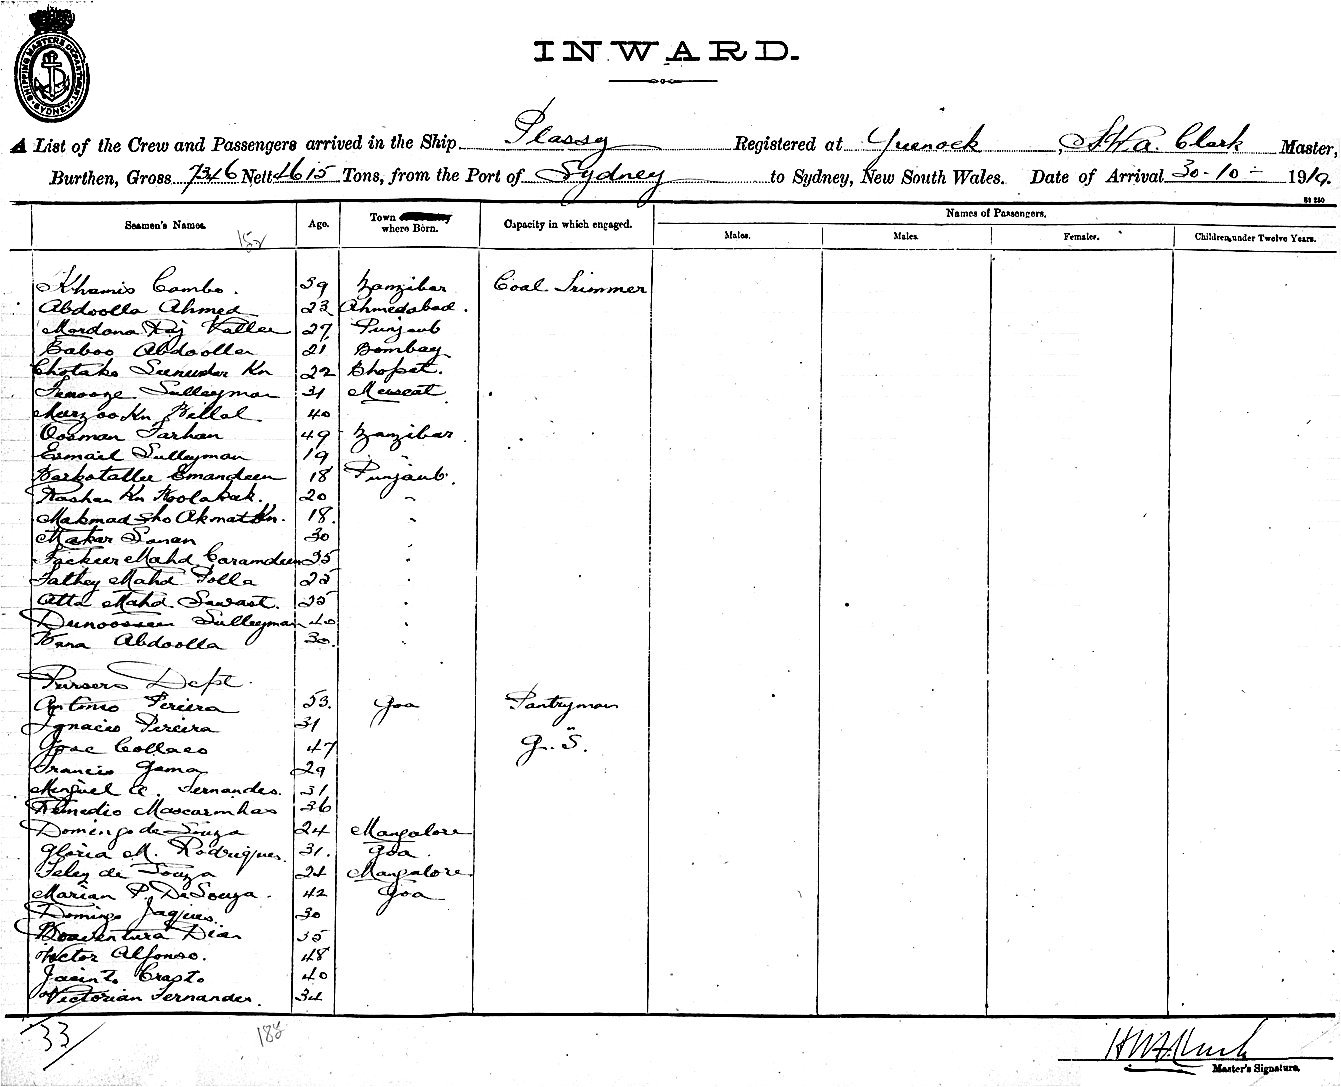 SHIPPING MASTERS DEPARTMENT SYDNEY
INWARD.
A List of the Crew and Passengers arrived in the Ship Plassy Registered at Greenock, Clark Master,
Burthen, Gross 7346 Nett 4615 Tons, from the Port of Sydney to Sydney, New South Wales. Date of Arrival 30-10- 1919.
Seamen's Names. Age. Town where Born. Capacity in which engaged. Names of Passengers.
Males. Males. Females. Children, under Twelve Years.
Khamis Combo. 39 Zanzibar Coal Trimmer
Abdoolla Ahmed 23 Ahmedabad.
Mordana 27 Punjaub
Baboo Abdoolla 21 Bombay
Kn 22
Sulleyman 31 Muscat
Kn Billal 40
Oosman Farhan 49 Zanzibar
Esmail Sulleyman 19 "
Emandeen 18 Punjaub.
Kn 20 "
Mahmad Sho Akmat Kn. 18. "
30 "
Mahd Caramdeen 35 "
Mahd 25 "
Atta Mahd. 25 "
Sulleyman 40 "
Abdoolla 30. "
Pursers Dept.
Antonio Pereira 53. Goa Pantryman
Ignacio Pereira 31 "
Jose Collaco 47 G. S.
Francis Gama 29
Miguel A. Fernandes. 31
Remedio Mascarinhas 36
Domingo de Souza 24 Mangalore
Gloria M. Rodrigues. 31. Goa
Felez de Souza 24 Mangalore.
Marian P. DeSouza. 42 Goa
Domingo Jaques. 30
Boaventura Dias 35
Victor Alfonso. 48
Jacinto Crasto 40
Victorian Fernandes. 34
33
Master's Signature.